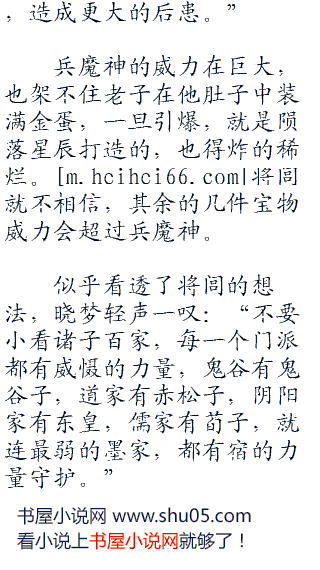 ，造成更大的后患。”
兵魔神的威力在巨大，
也架不住老子在他肚子中装
满金蛋，一旦引爆，就是陨
落星辰打造的，也得炸的稀
烂。[m.hcihci66.com|将闾
就不相信，其余的几件宝物
威力会超过兵魔神。
似乎看透了将闾的想
法，晓梦轻声一叹：“不要
小看诸子百家，每一个门派
都有威慑的力量，鬼谷有鬼
谷子，道家有赤松子，阴阳
家有东皇，儒家有荀子，就
连最弱的墨家，都有宿的力
量守护。”
书屋小说网 www.shu05.com
看小说上书屋小说网就够了！